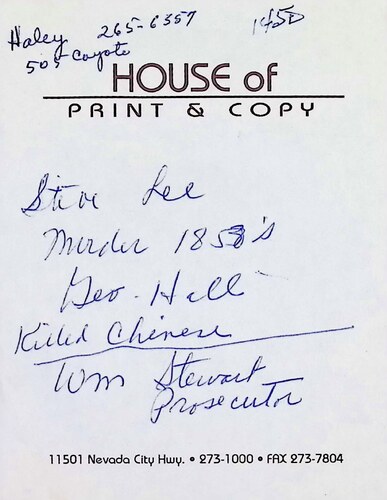 Haley 265-6357
1450
505 Coyote
HOUSE of
PRINT & COPY
Steve Lee
Murder 1850's
Geo. Hall
Killed Chinese
Wm Stewart
Prosecutor
11501 Nevada City Hwy. • 273-1000 • FAX 273-7804